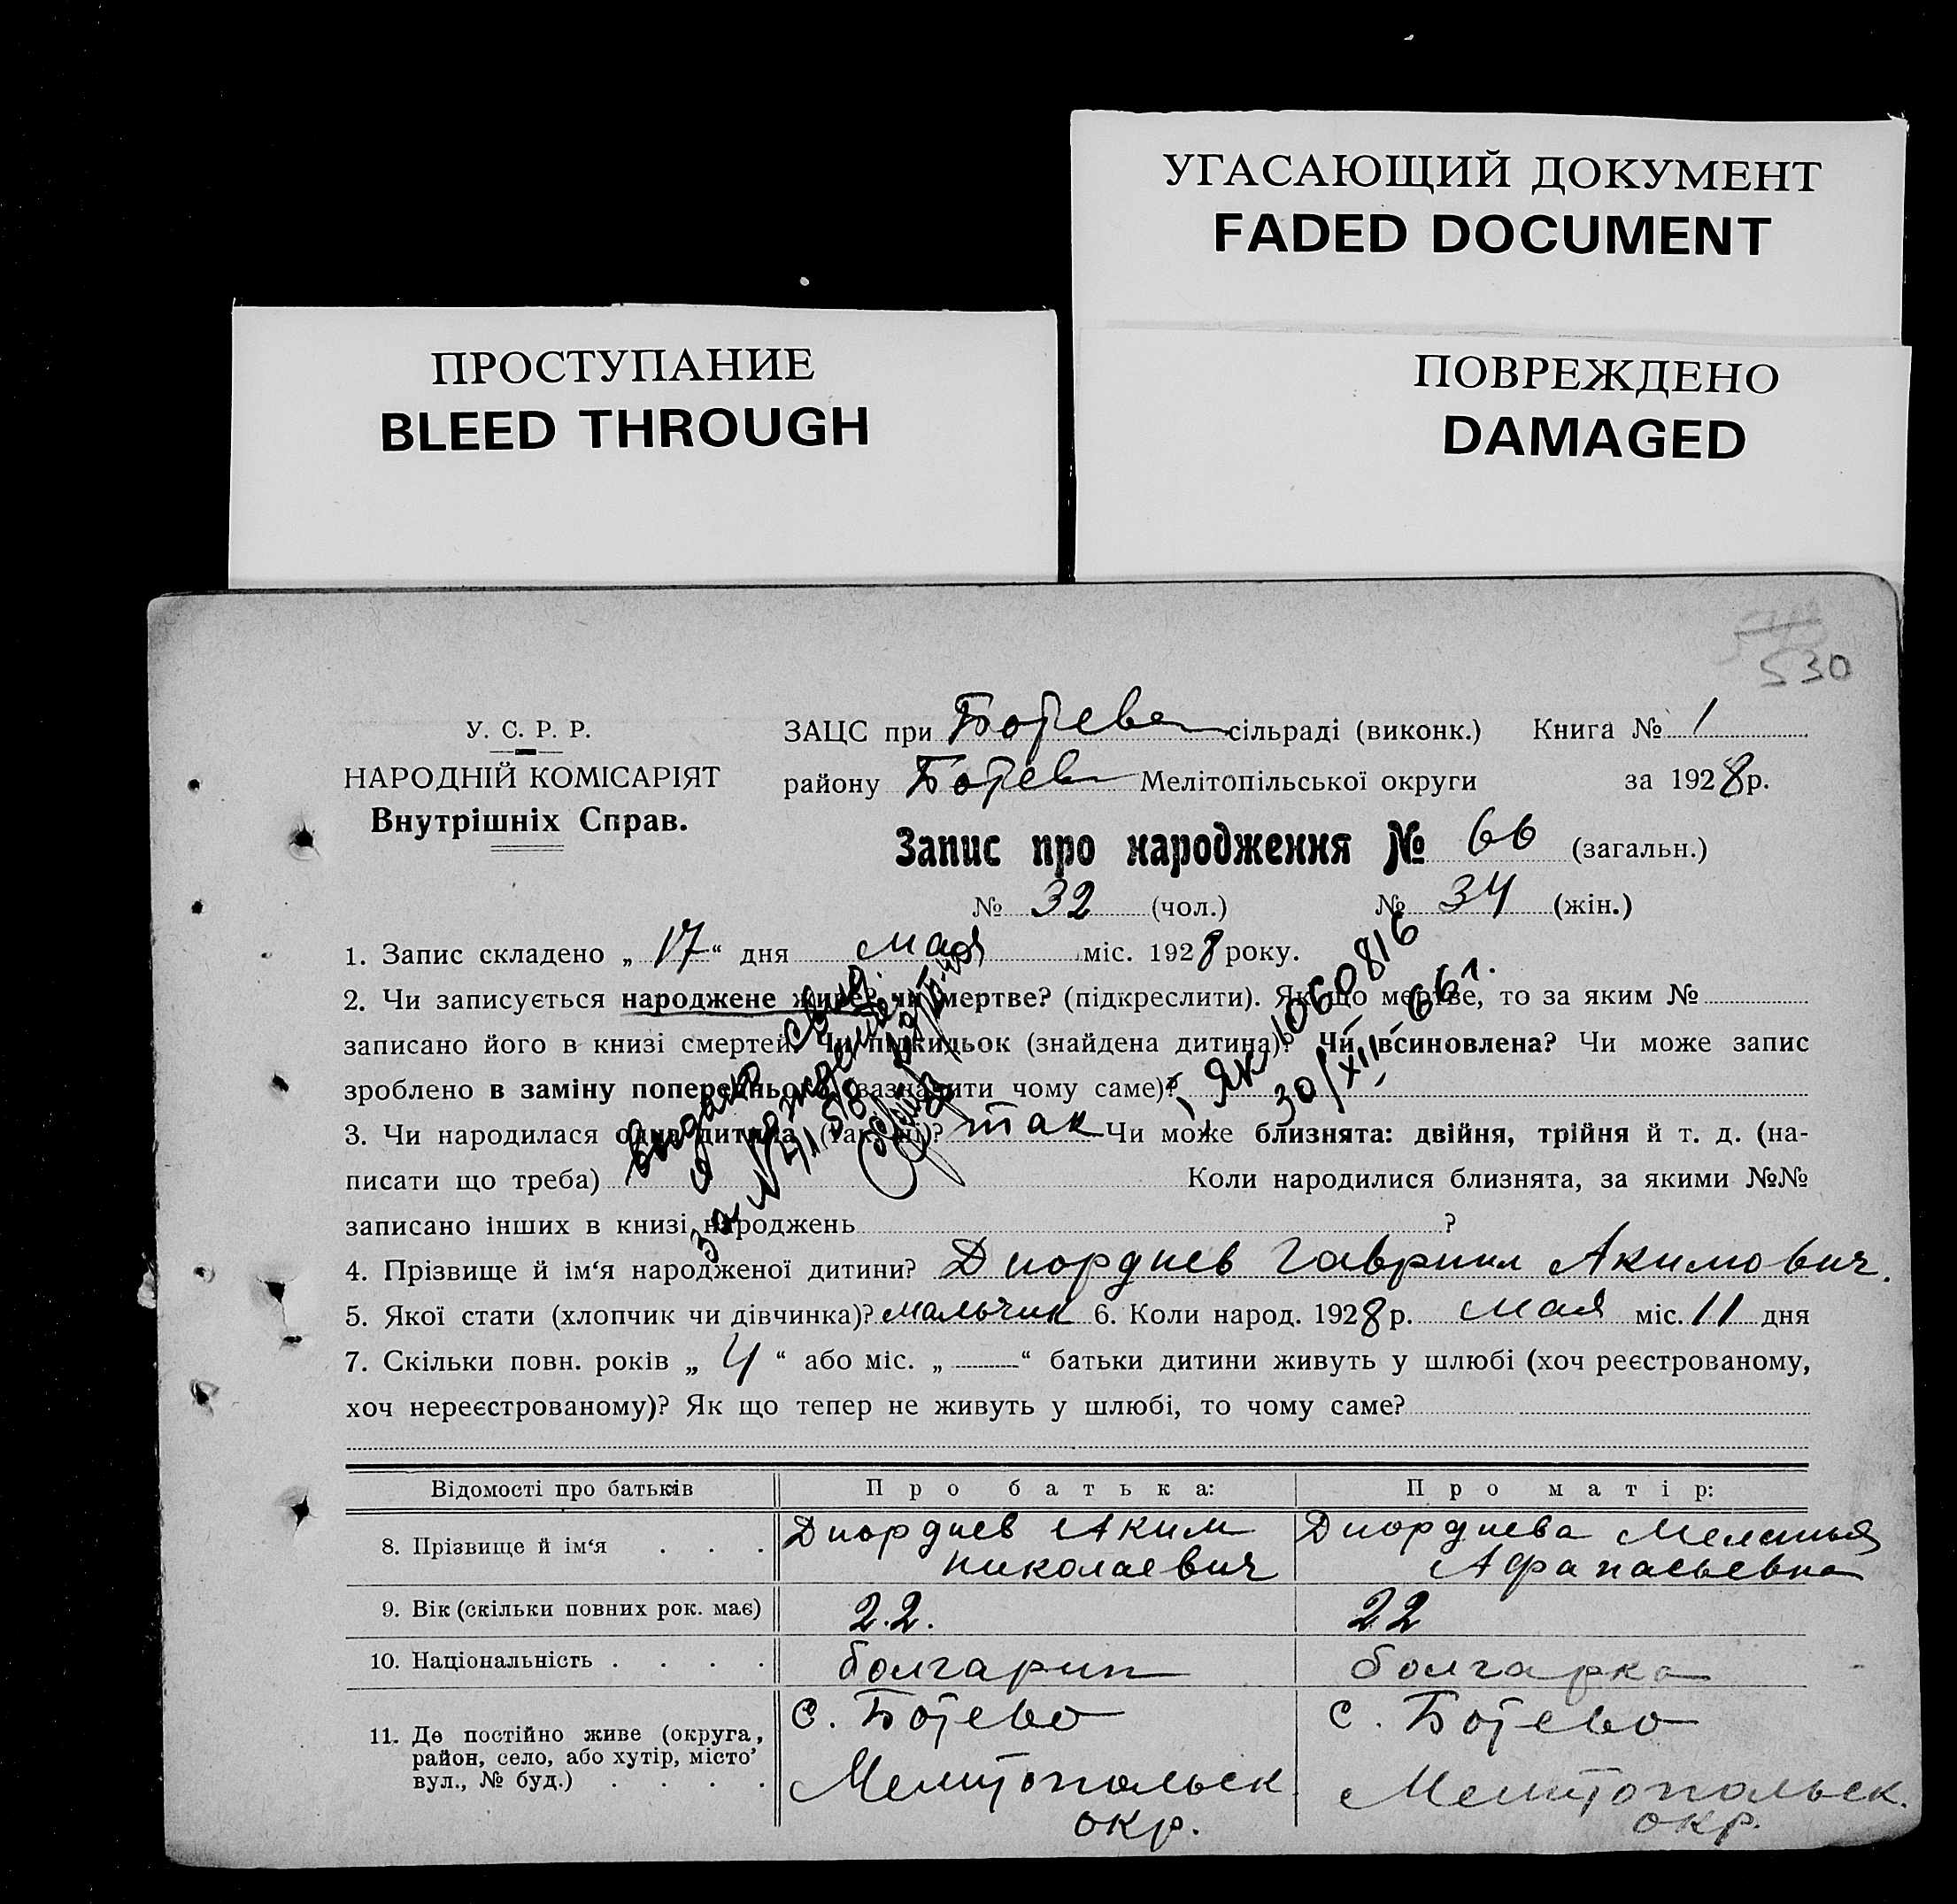 УГАСАЮЩИЙ ДОКУМЕНТ
FADED DOCUMENT
ПРОСТУПАНИЕ
BLEED THROUGH
ПОВРЕЖДЕНО
DAMAGED
530
У. С. Р. Р.
НАРОДНІЙ КОМІСАРІЯТ
Внутрішніх Справ.
ЗАЦС при Ботево сільраді (виконк.) Книга № 1
району Ботев Мелітопільської округи за 1928 р.
Запис про народження № 66 (загальн.)
№ 32 (чол.) № 34 (жін.)
1. Запис складено „ 17 “ дня мая міс. 1928 року.
2. Чи записується народжене живе? чи мертве? (підкреслити). Як що мертве, то за яким №
записано його в книзі смертей. Чи підкидьок (знайдена дитина)? Чи всиновлена? Чи може запис
зроблено в заміну попереднього (зазначити чому саме)?
3. Чи народилася одна дитина (так, ні)? так Чи може близнята: двійня, трійня й т. д. (на-
писати що треба) Коли народилися близнята, за якими №№
записано інших в книзі народжень ?
Выдано свид.
о рождении
ЯК 1060816
30/XII-66 г.
4. Прізвище й ім‘я народженої дитини? Диордиев Гавриил Акимович.
5. Якої стати (хлопчик чи дівчинка)? мальчик 6. Коли народ. 1928 р. мая міс. 11 дня
7. Скільки повн. років „ 4 “ або міс. „ — “ батьки дитини живуть у шлюбі (хоч реєстрованому,
хоч нереєстрованому)? Як що тепер не живуть у шлюбі, то чому саме?
Відомості про батьків Про батька: Про матір:
8. Прізвище й ім‘я . . . Диордиев Аким николаевич Диордиева Мелания Афанасьевна
9. Вік (скільки повних рок. має) 22. 22
10. Національність . . . . болгарин болгарка
11. Де постійно живе (округа, район, село, або хутір, місто’ вул., № буд.) . . . . с. Ботево Мелитопольск окр. с. Ботево Мелитопольск. окр.